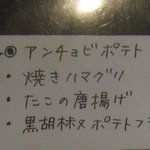 ◉ アンチョビポテト
・焼きハマグリ
・たこの唐揚げ
・黒胡椒ヌポテトフラ